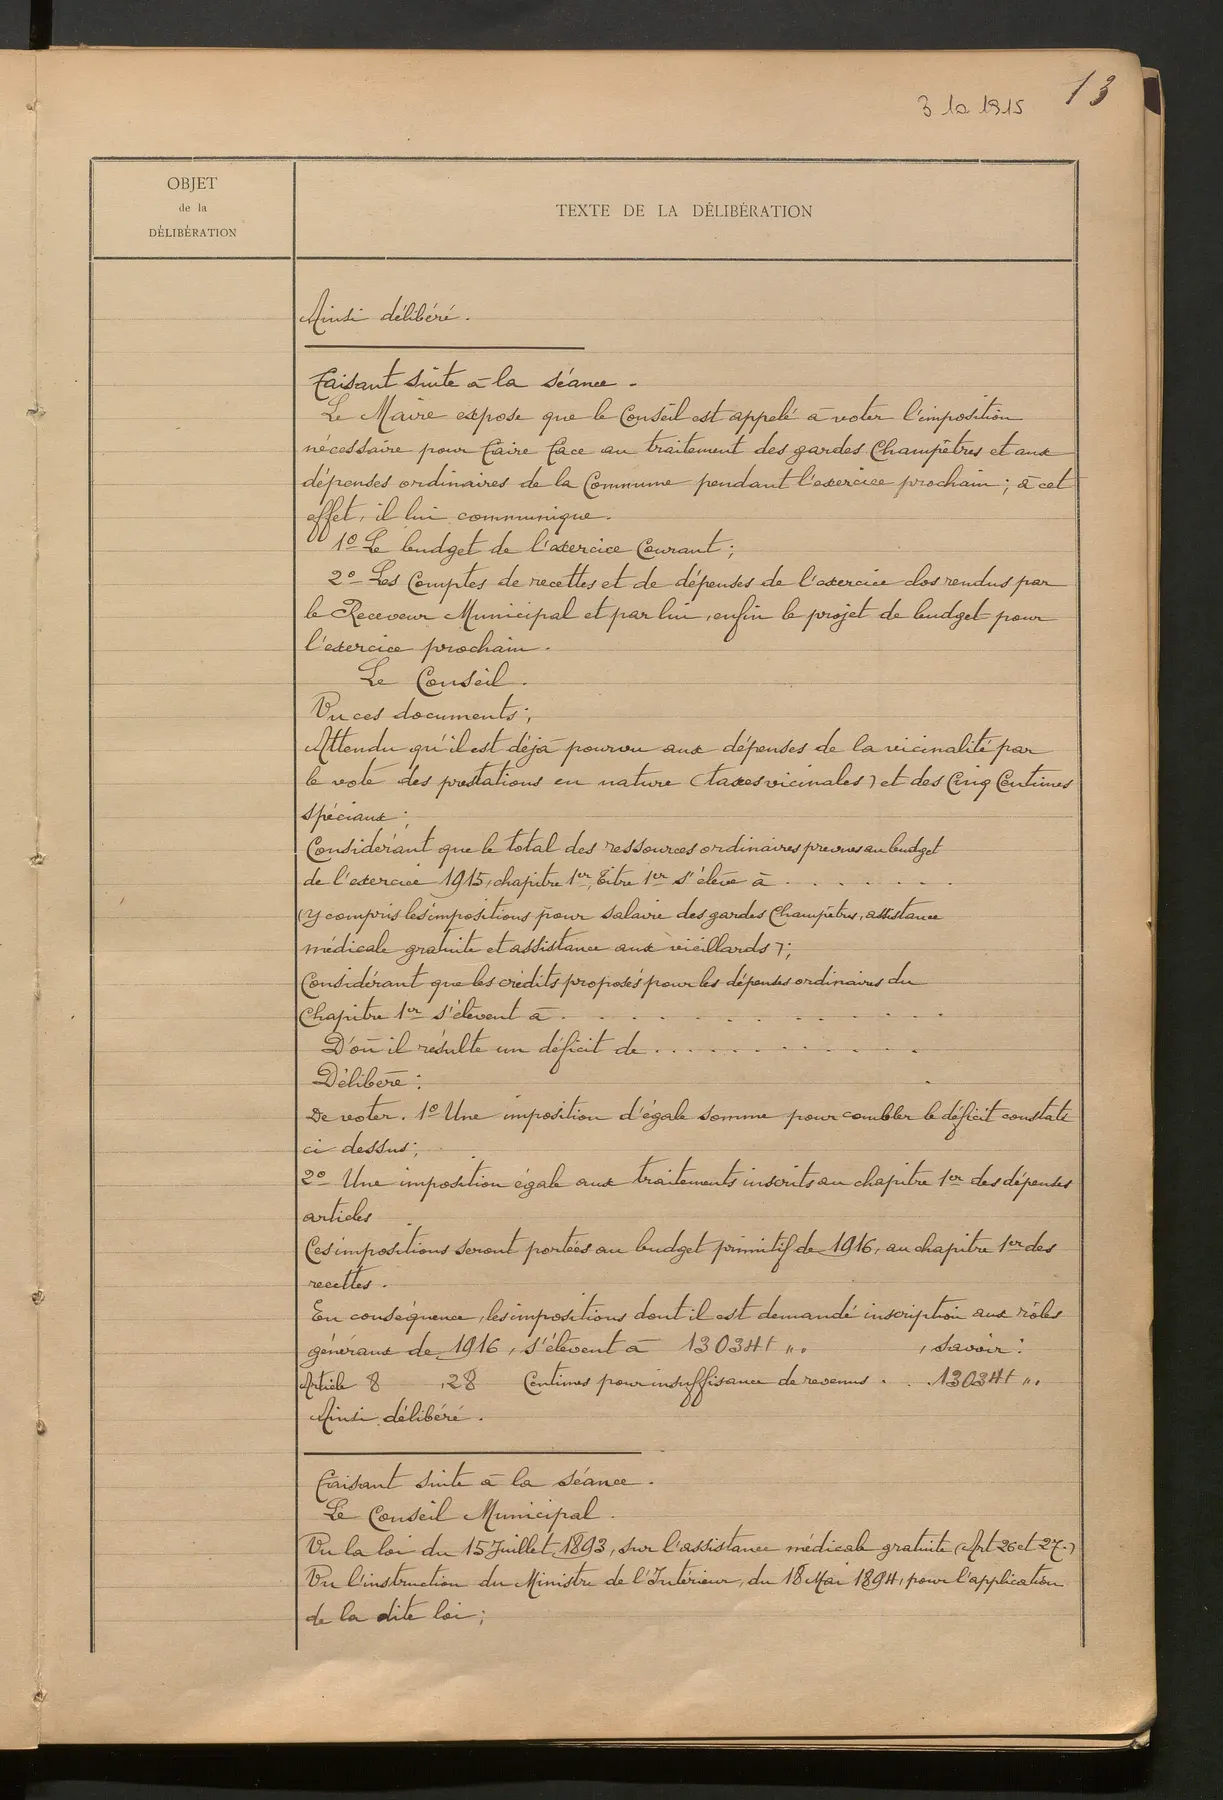 13
3 10 1915
OBJET
de la
DÉLIBÉRATION
TEXTE DE LA DÉLIBÉRATION
Ainsi délibéré.
Faisant suite à la séance.
Le Maire expose que le Conseil est appelé à voter l'imposition
nécessaire pour faire face au traitement des gardes Champêtres et aux
dépenses ordinaires de la Commune pendant l'exercice prochain; à cet
effet, il lui communique.
1º Le budget de l'exercice Courant;
2º Les Comptes de recettes et de dépenses de l'exercice clos rendus par
le Receveur Municipal et par lui, enfin le projet de budget pour
l'exercice prochain.
Le Conseil.
Vu ces documents;
Attendu qu'il est déjà pourvu aux dépenses de la vicinalité par
le vote des prestations en nature (taxes vicinales) et des Cinq Centimes
spéciaux;
Considérant que le total des ressources ordinaires prévues au budget
de l'exercice 1915, chapitre 1er, titre 1er s'élève à . . . . . . .
(y compris les impositions pour salaire des gardes Champêtres, assistance
médicale gratuite et assistance aux vieillards);
Considérant que les crédits proposés pour les dépenses ordinaires du
Chapitre 1er s'élèvent à . . . . . . . . . . . .
D'où il résulte un déficit de . . . . . . . . . . . .
Délibère:
De voter. 1º Une imposition d'égale somme pour combler le déficit constaté
ci dessus;
2º Une imposition égale aux traitements inscrits au chapitre 1er des dépenses
articles
Ces impositions seront portées au budget primitif de 1916, au chapitre 1er des
recettes.
En conséquence, les impositions dont il est demandé inscription aux rôles
généraux de 1916, s'élèvent à 13034f ,,. , savoir:
Article 8 ,28 Centimes pour insuffisance de revenus . . . 13034f ,,.
Ainsi délibéré.
Faisant suite à la séance.
Le Conseil Municipal.
Vu la loi du 15 Juillet 1893, sur l'assistance médicale gratuite (Art 26 et 27.)
Vu l'instruction du Ministre de l'Intérieur, du 18 Mai 1894, pour l'application
de la dite loi;